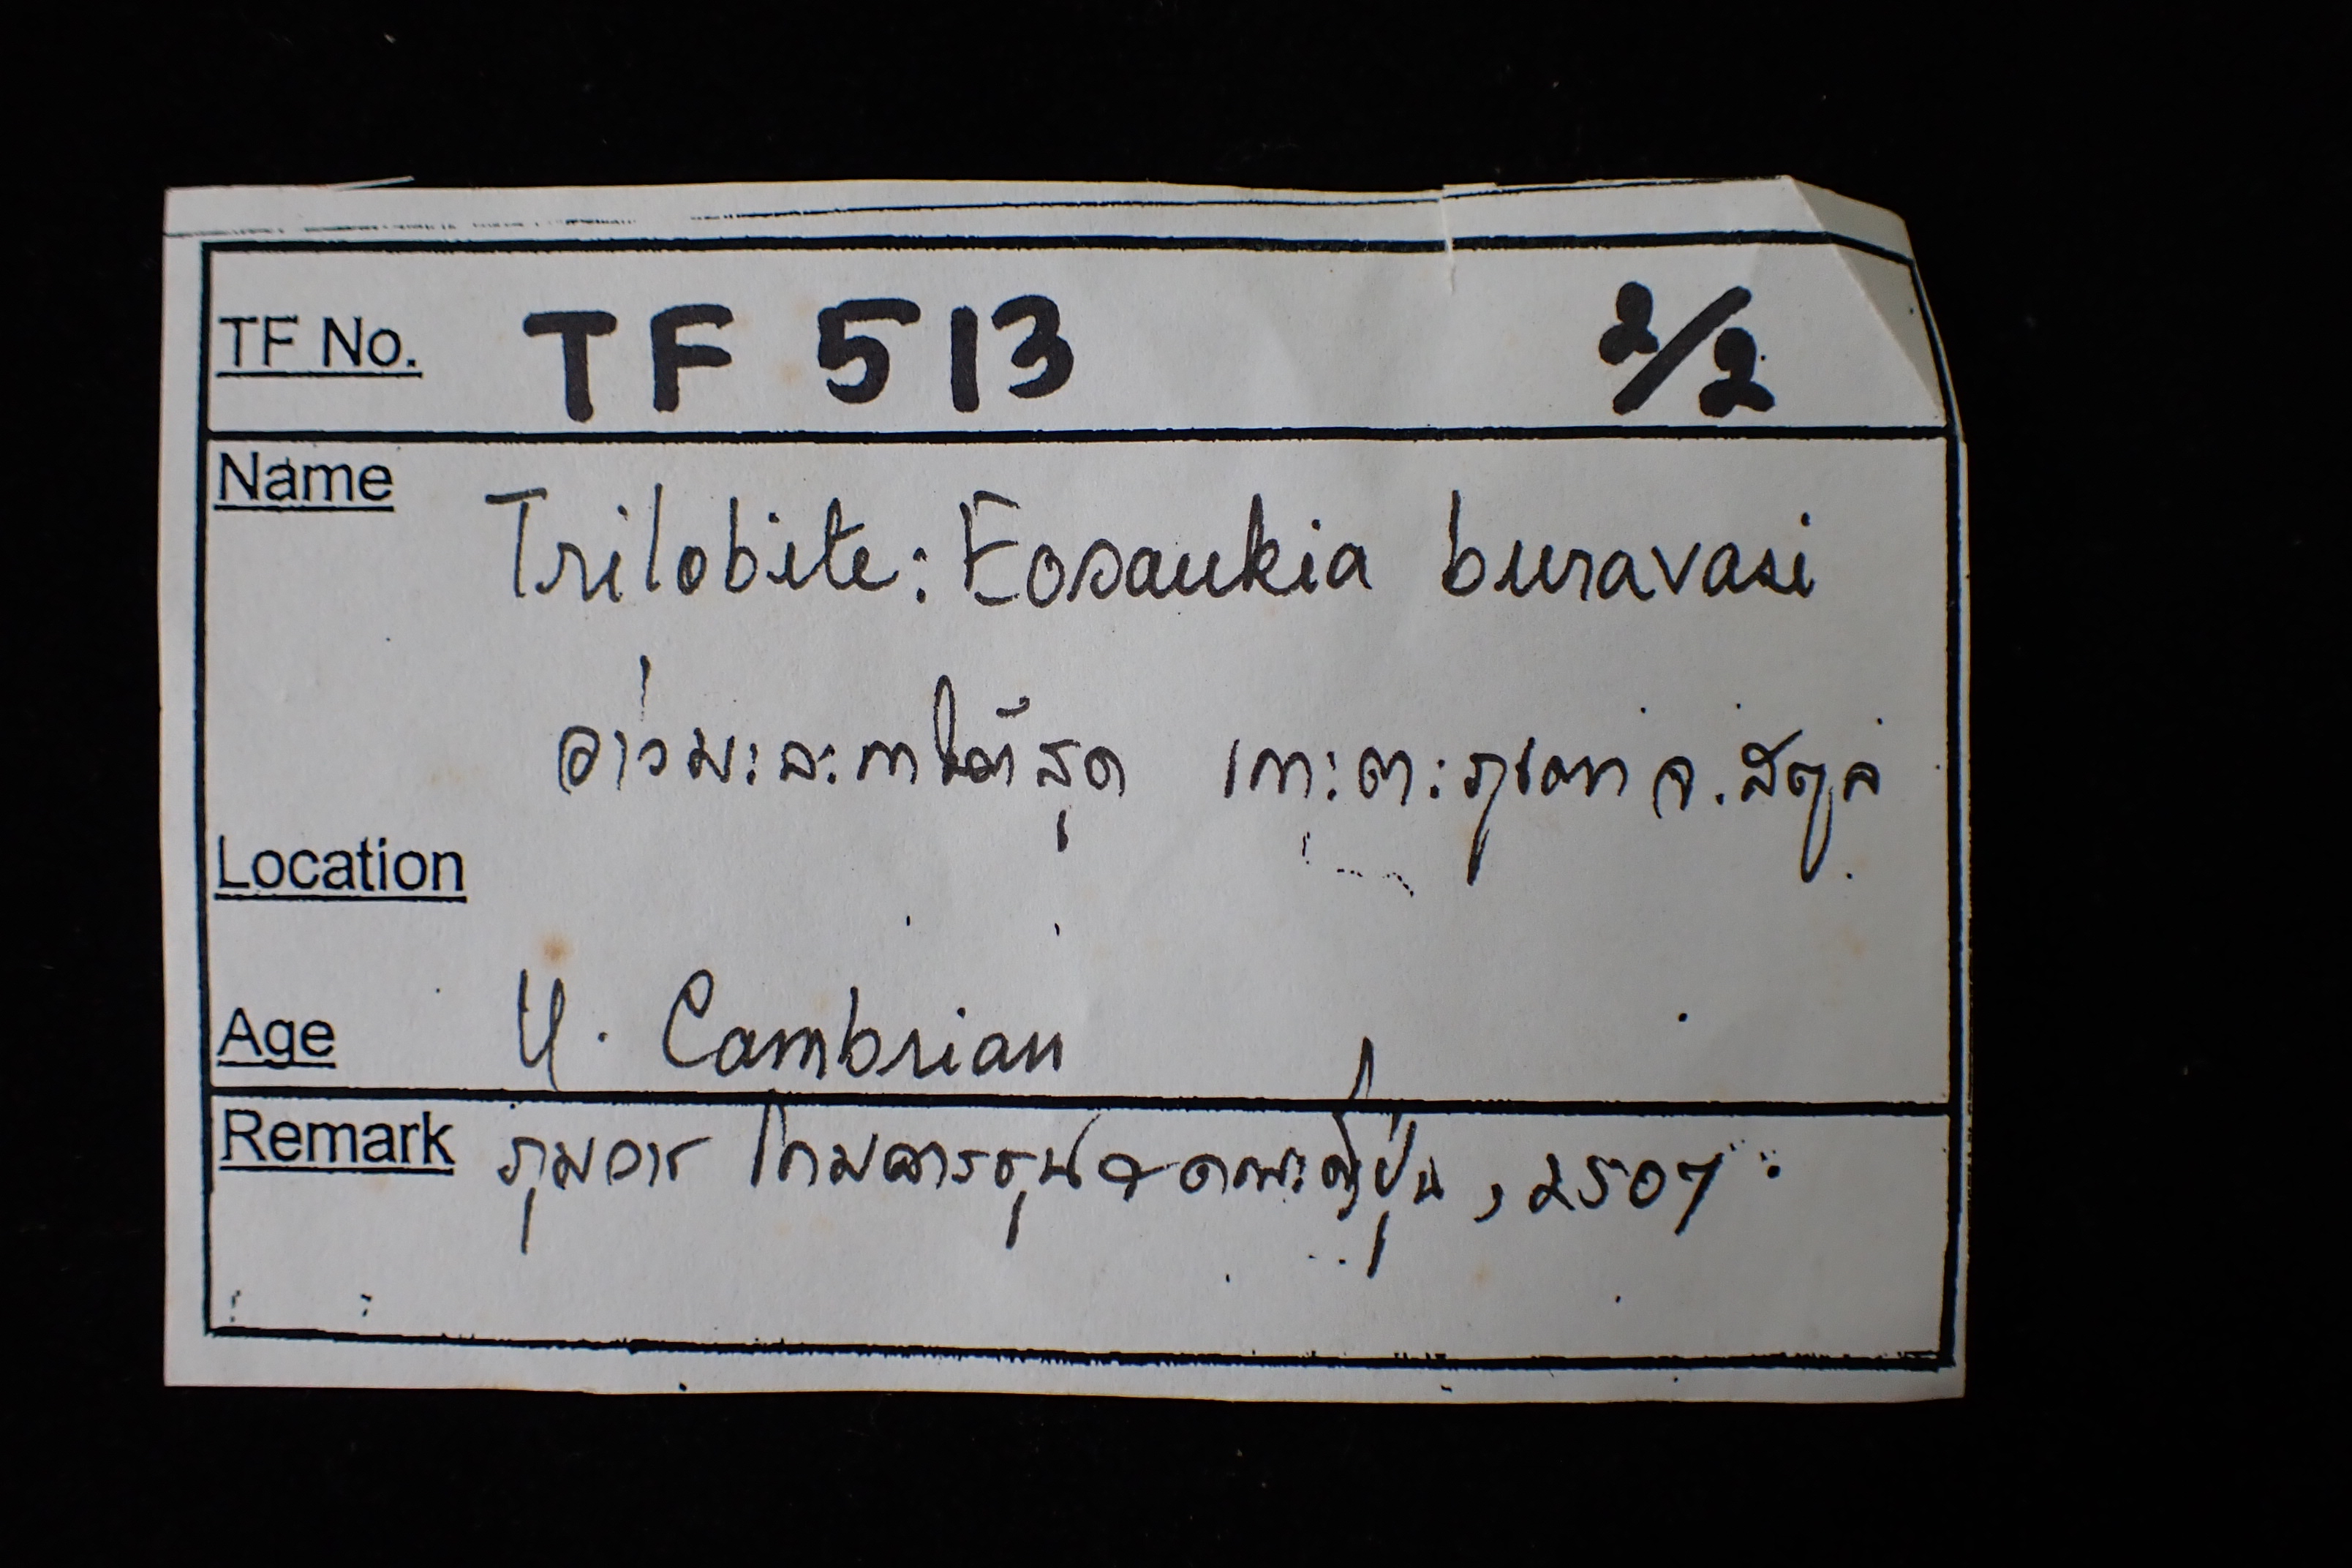 TF No. TF 513 2/2
Name
Trilobite: Eosaukia buravasi
อ่าวมะละกาใต้สุด เกาะตะรุเตา จ.สตูล
Location
Age U. Cambrian
Remark คณะญี่ปุ่น, 2507